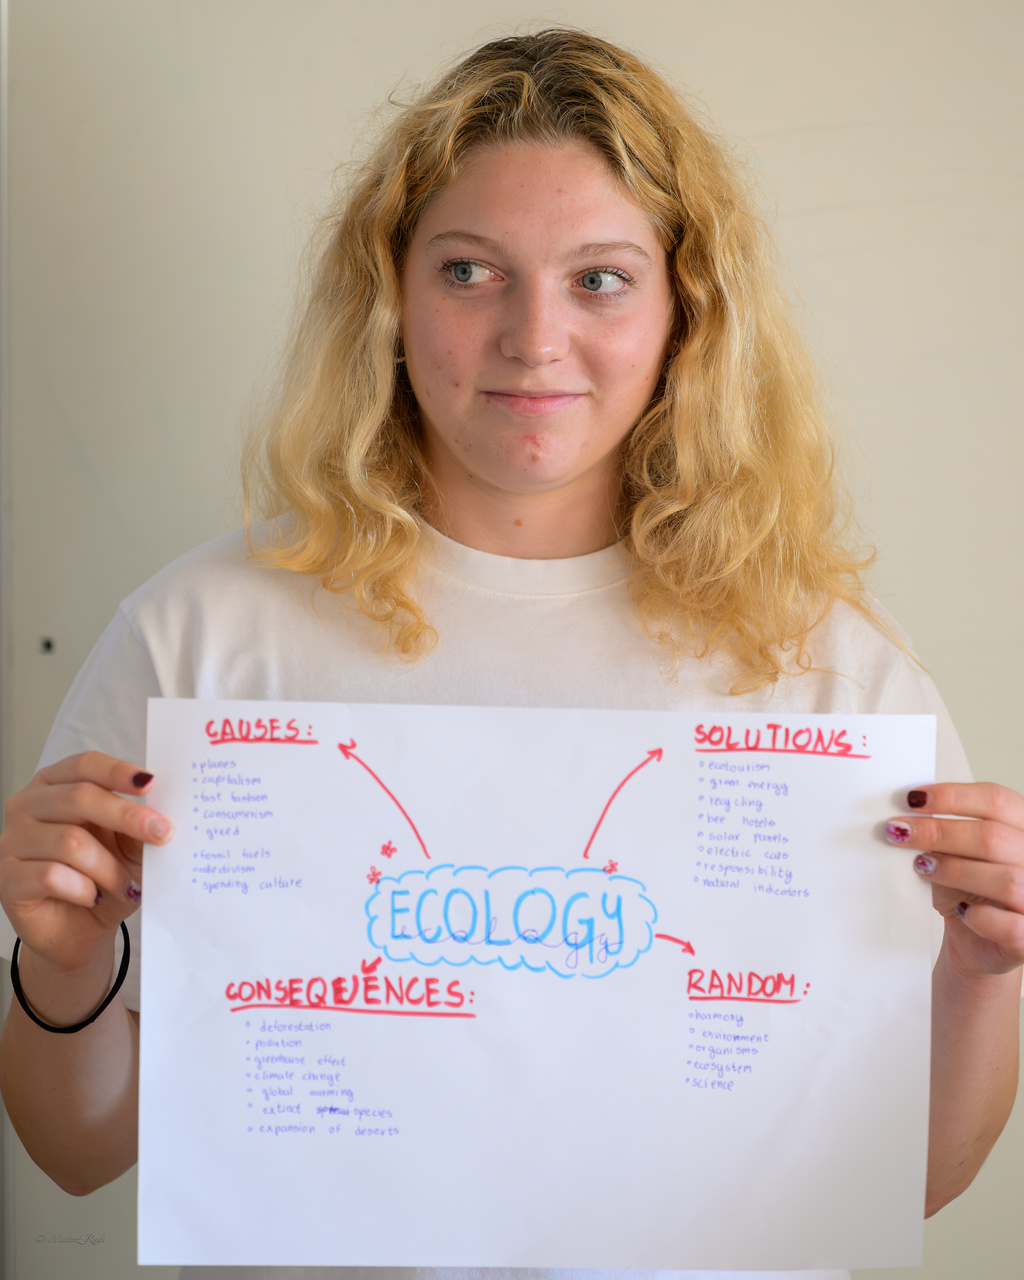 CAUSES:
planes
capitalism
fast fashion
consumerism
greed
fossil fuels
spending culture
SOLUTIONS:
ecotourism
green energy
recycling
bee hotels
solar panels
electric cars
responsibility
natural indicators
ECOLOGY
ecology
CONSEQUENCES:
deforestation
pollution
greenhouse effect
climate change
global warming
extinct species
expansion of deserts
RANDOM:
harmony
environment
organisms
ecosystem
science